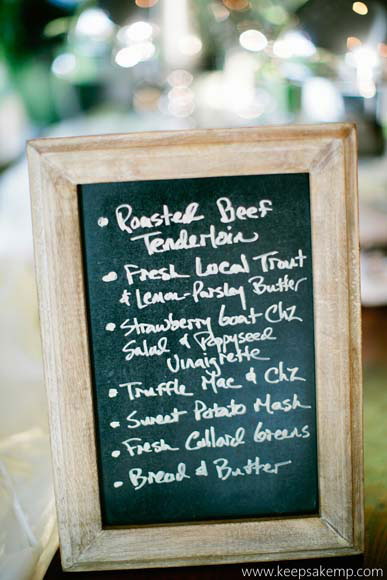 • Roasted Beef
Tenderloin
• Fresh Local Trout
& Lemon-Parsley Butter
• Strawberry Goat Chz
Salad & Poppyseed
Vinaigrette
• Truffle Mac & Chz
• Sweet Potato Mash
• Fresh Collard Greens
• Bread & Butter
www.keepsakemp.com